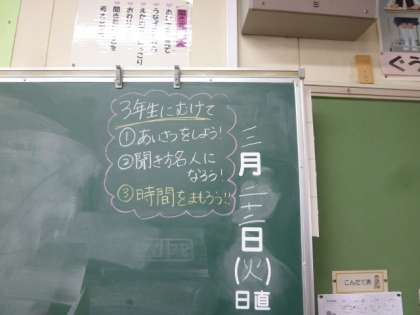 3年生にむけて
①あいさつをしよう!
②聞き方名人に
なろう!
③時間をまもろう!!
三月二十二日(火)
日直
こんだて表
ぐう